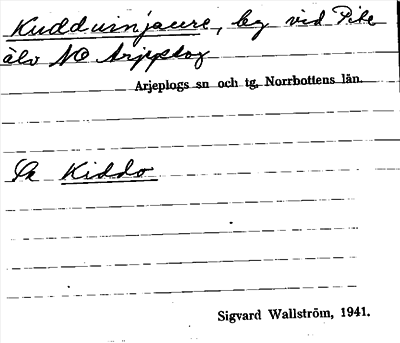 Kudduinjaure, lg vid Pite
älv NO Arjeplog
Arjeplogs sn och tg, Norrbottens län.
Se Kiddo
Sigvard Wallström, 1941.